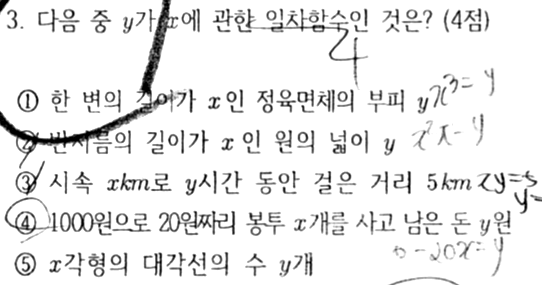 3. 다음 중 y가 x에 관한 일차함수인 것은? (4점)
4
① 한 변의 길이가 x인 정육면체의 부피 y x³=y
② 반지름의 길이가 x인 원의 넓이 y x²π=y
③ 시속 xkm로 y시간 동안 걸은 거리 5km xy=5
④ 1000원으로 20원짜리 봉투 x개를 사고 남은 돈 y원
-20x=y
⑤ x각형의 대각선의 수 y개